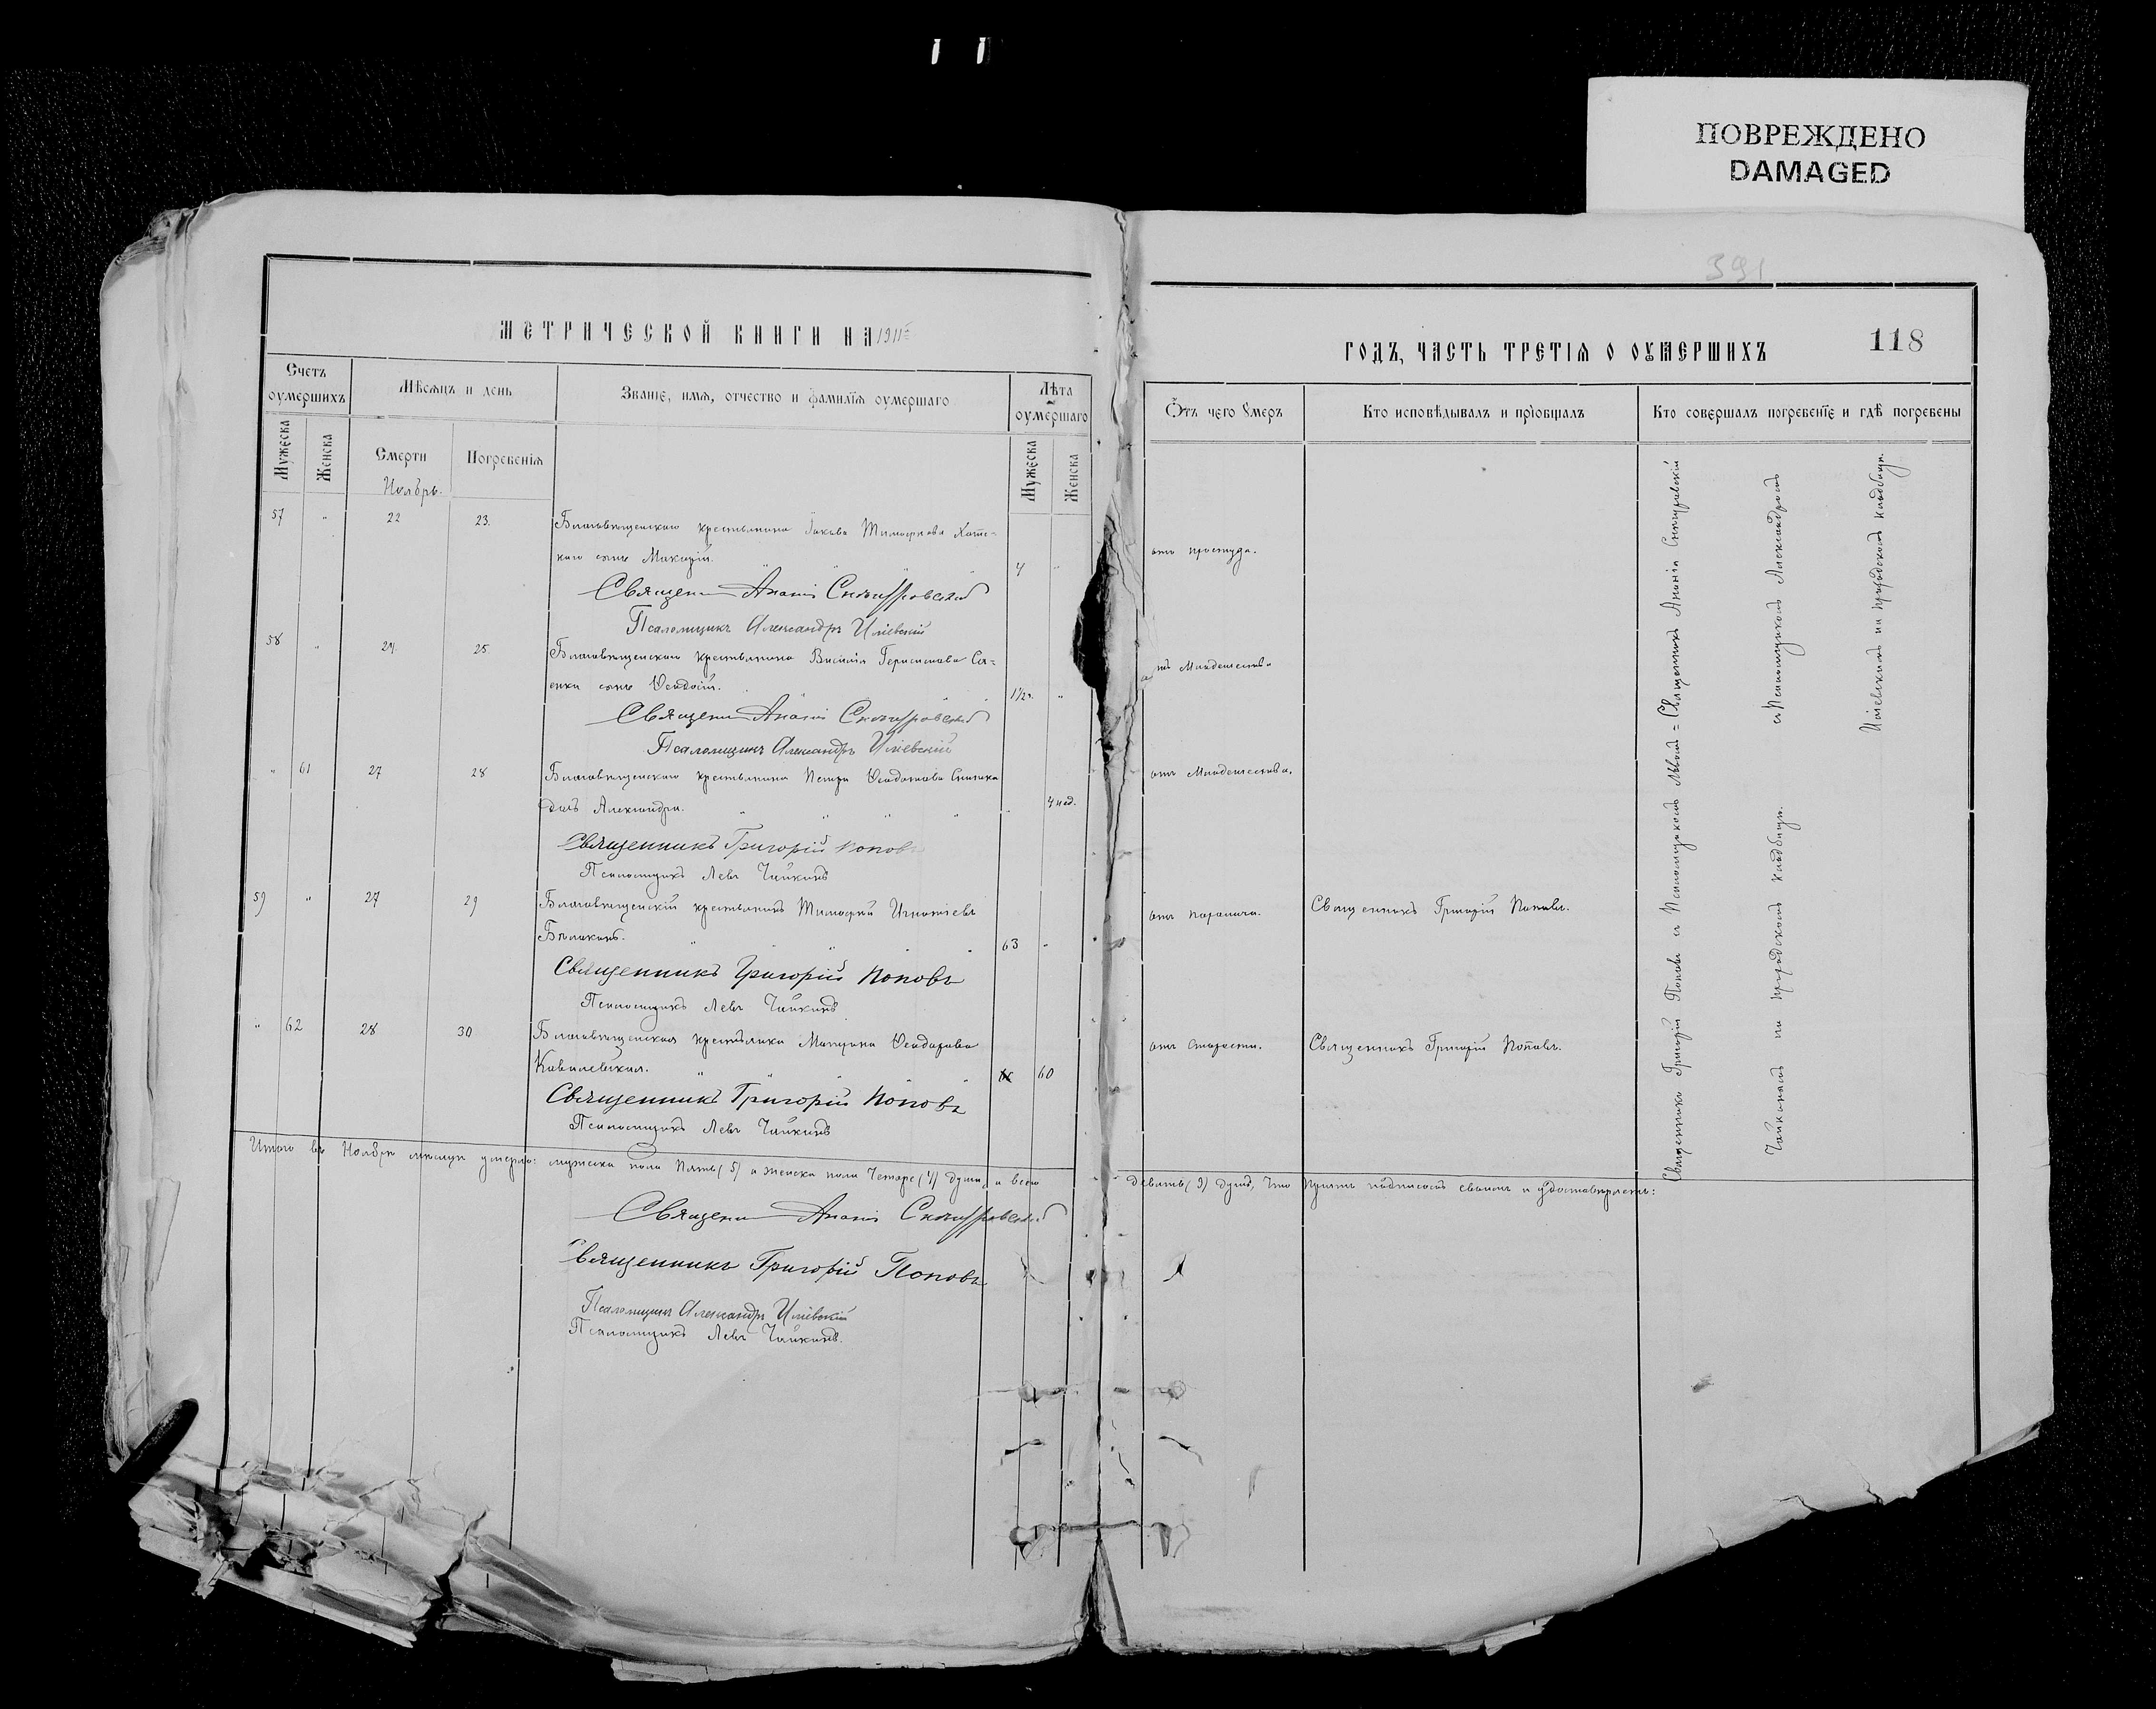 ПОВРЕЖДЕНО
DAMAGED
391
МЕТРИЧЕСКОЙ КНИГИ НА 1911
ГОДЪ, ЧАСТЬ ТРЕТІЯ О ОУМЕРШИХЪ
118
Счетъ оумершихъ
Мѣсяцъ и день
Званіе, имя, отчество и фамилія оумершаго
Лѣта оумершаго
Отъ чего умеръ
Кто исповѣдывалъ и пріобщалъ
Кто совершалъ погребеніе и гдѣ погребены
Мужеска
Женска
Смерти
Погребенія
Мужеска
Женска
Ноябрь.
57 " 22 23. Благовѣщенскаго крестьянина Іакова Тимофеева
сынъ 4 " отъ простуды.
Священникъ Ананія
Псаломщикъ Александръ Иліевскій
58 " 24 25 Благовѣщенскаго крестьянина Василія Герасимова
сынъ Ѳеодосій. 1½ г. " отъ младенчества
Священникъ Ананія
Псаломщикъ Александръ Иліевскій
" 61 27 28 Благовѣщенскаго крестьянина Петра Ѳеодотова
дочь Александра. " 4 нед. отъ младенчества.
Священникъ Григорій Поповъ
Псаломщикъ Левъ Чайкинъ
59 " 27 29 Благовѣщенскій крестьянинъ Тимофей Игнатіевъ
Бѣликинъ. 63 " отъ паралича. Священникъ Григорій Поповъ.
Священникъ Григорій Поповъ
Псаломщикъ Левъ Чайкинъ
" 62 28 30 Благовѣщенская крестьянка Матрона Ѳеодорова
Ковалевская. 60 отъ старости. Священникъ Григорій Поповъ.
Священникъ Григорій Поповъ
Псаломщикъ Левъ Чайкинъ
Священникъ Григорій Поповъ съ Псаломщикомъ Львомъ = Священникъ Ананія
Чайкинымъ на приходскомъ кладбищѣ. съ Псаломщикомъ Александромъ
Иліевскимъ на приходскомъ кладбищѣ.
Итого въ Ноябрѣ мѣсяцѣ умерло: мужска пола Пять (5) а женска пола Четыре (4) души, а всего девять (9) душъ, что причтъ подписомъ своимъ и удостовѣряетъ:
Священникъ Ананія
Священникъ Григорій Поповъ
Псаломщикъ Александръ Иліевскій
Псаломщикъ Левъ Чайкинъ.